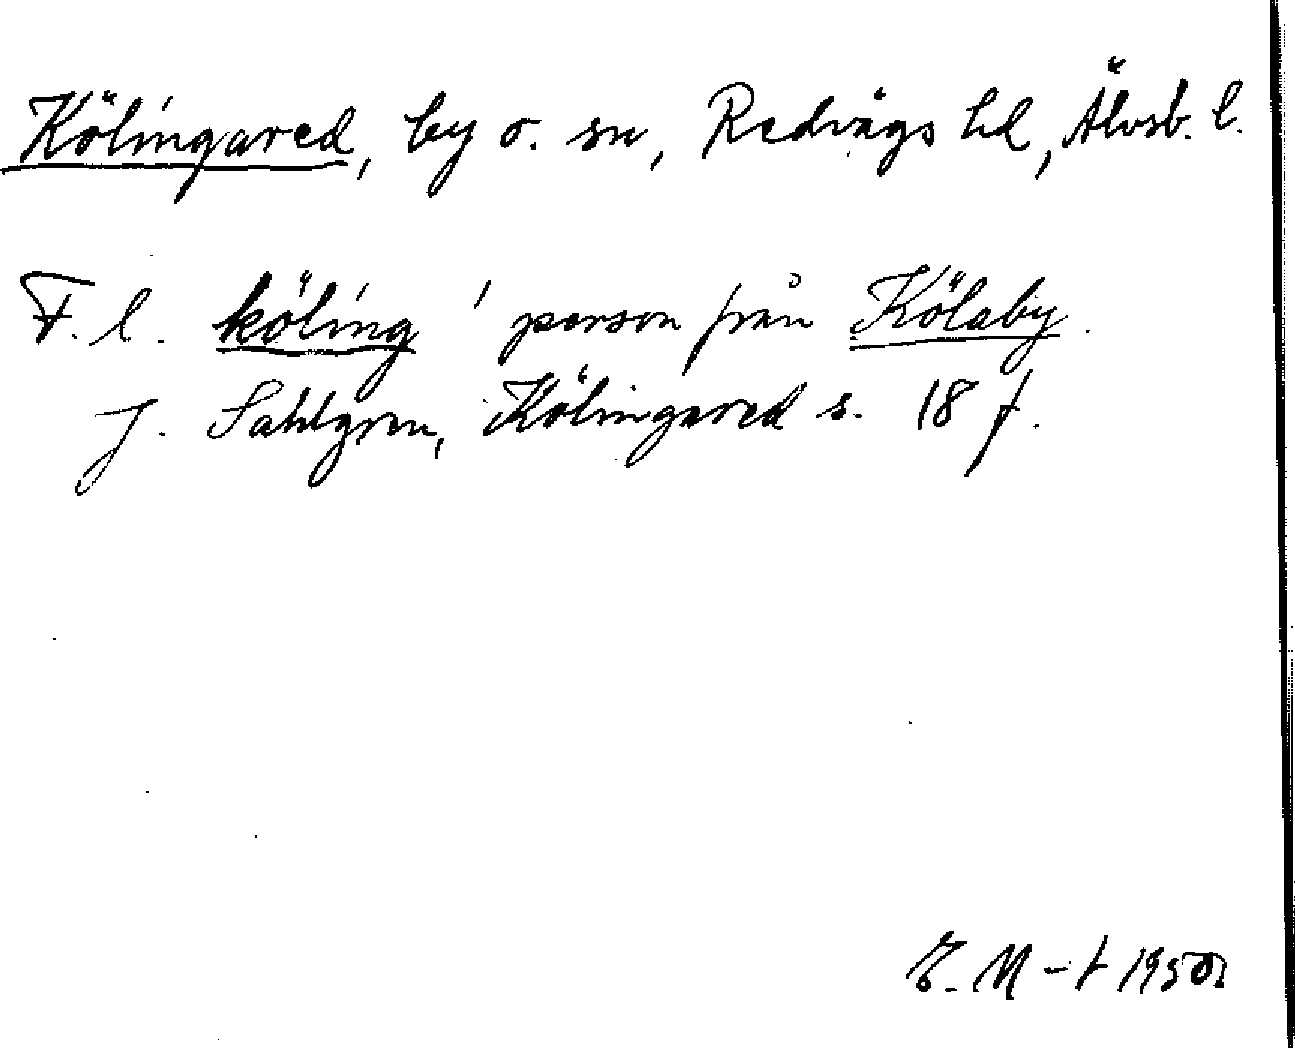 Kölingared, by o. sn, Redvägs hd, Älvsb. l.
F. l. köling ' person från Kölaby.
J. Sahlgren, Kölingared s. 18 f.
E. M-t 1950